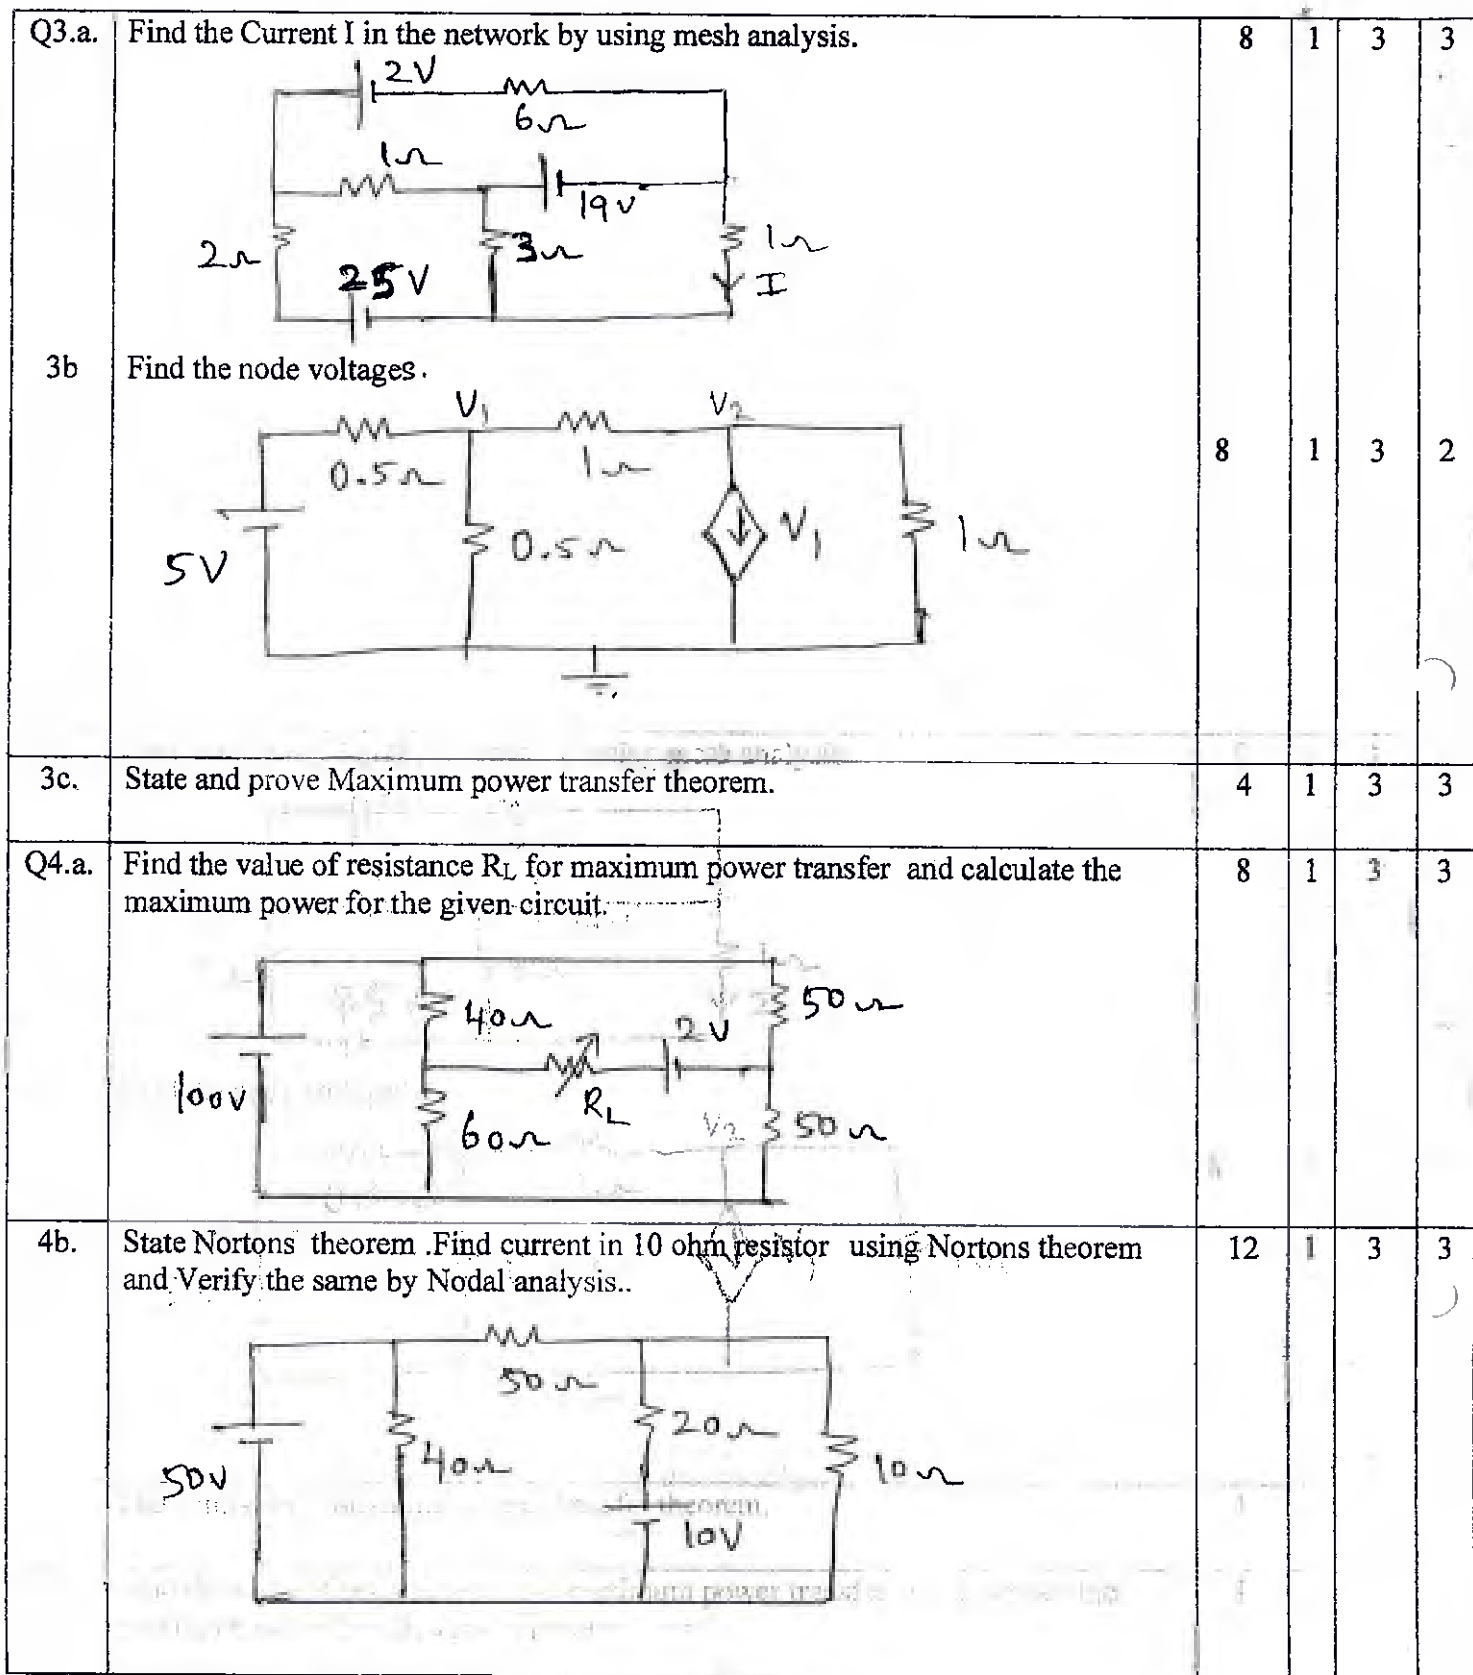 Q3.a. Find the Current I in the network by using mesh analysis. 8 1 3 3
2V
6Ω
1Ω
19V
2Ω
3Ω
1Ω
25V
I
3b Find the node voltages.
V1 V2
8 1 3 2
0.5Ω
1Ω
0.5Ω
V1
1Ω
5V
3c. State and prove Maximum power transfer theorem. 4 1 3 3
Q4.a. Find the value of resistance RL for maximum power transfer and calculate the 8 1 3 3
maximum power for the given circuit.
40Ω
2V
50Ω
100V
RL
60Ω
50Ω
4b. State Nortons theorem .Find current in 10 ohm resistor using Nortons theorem 12 1 3 3
and Verify the same by Nodal analysis..
50Ω
20Ω
40Ω
10Ω
50V
10V